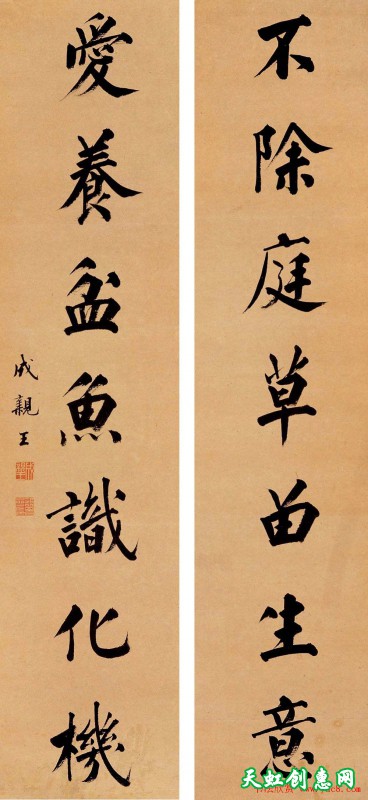 不除庭草留生意
愛養盆魚識化機
成親王
天虹创惠网